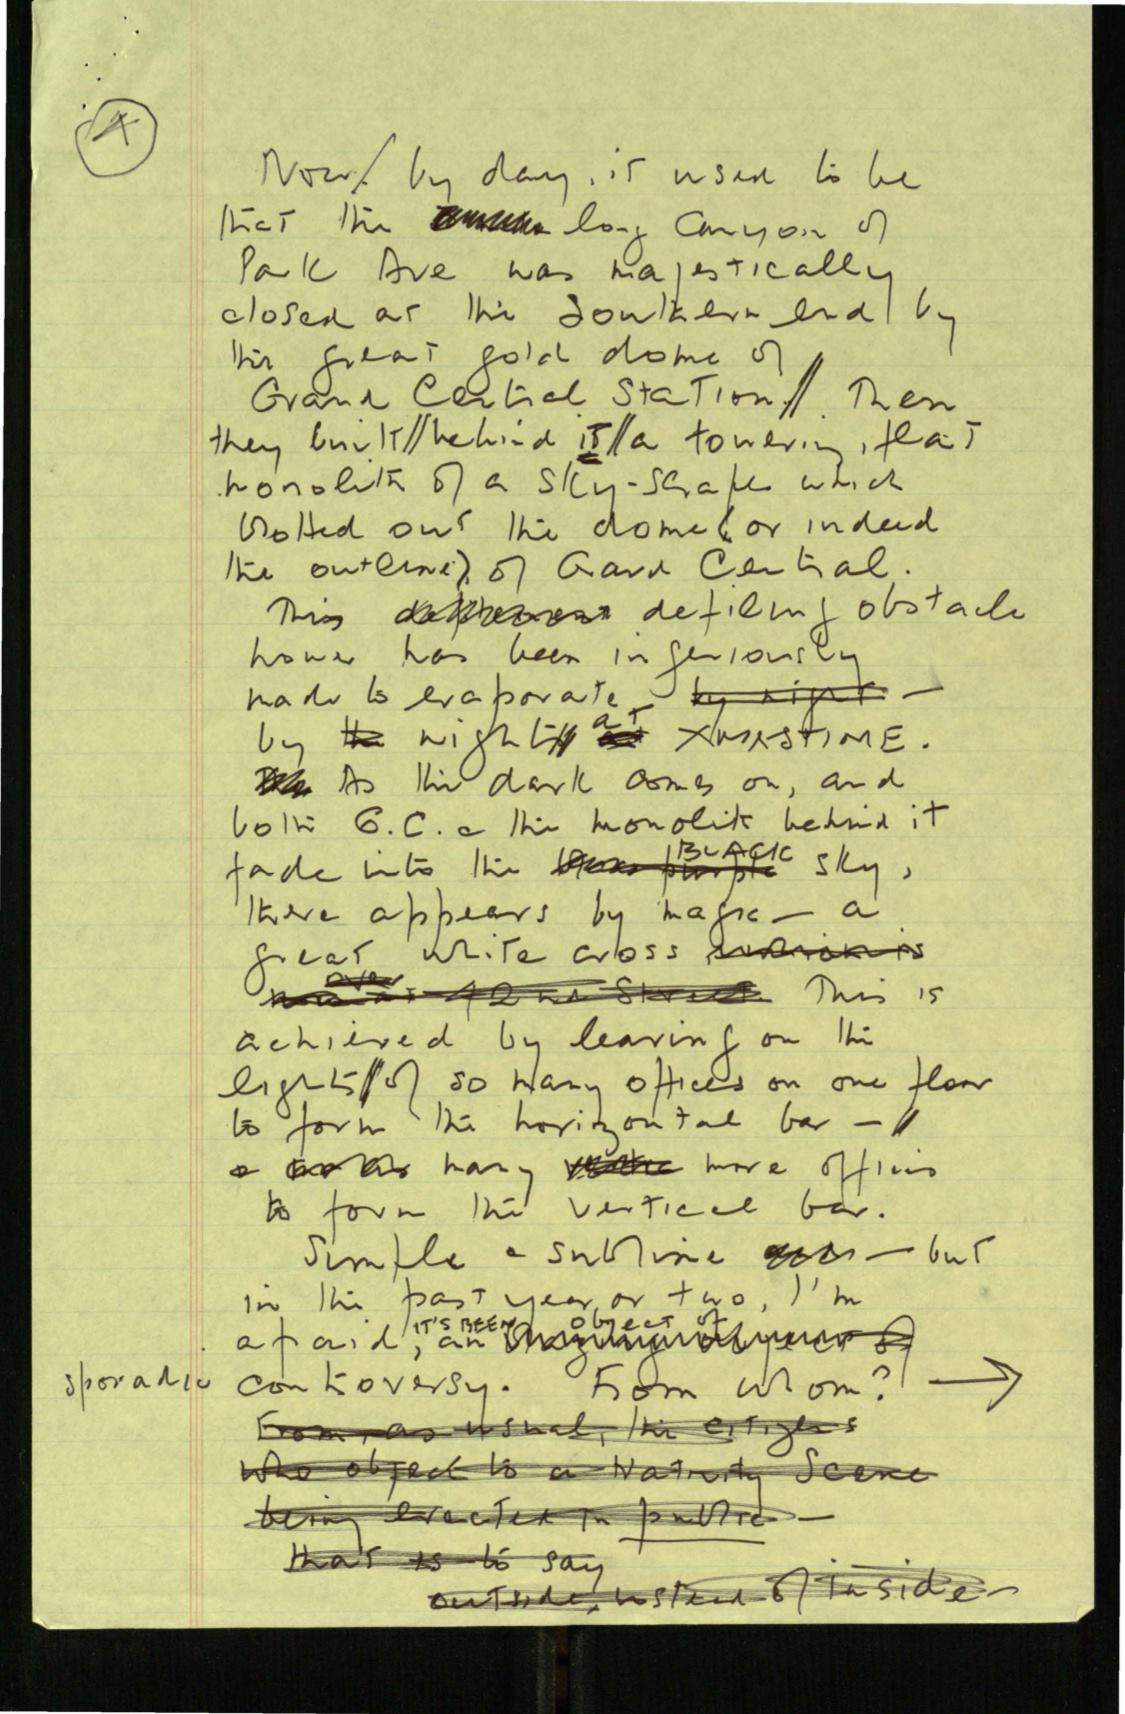 A
Now/ by day, it used to be
that the long Canyon of
Park Ave was majestically
closed at the Southern end by
the great gold dome of
Grand Central Station.// Then
they built//behind it//a towering, flat
monolith of a sky-scraper which
blotted out the dome (or indeed
the outline) of Grand Central.
This defiling obstacle
however has been ingeniously
made to evaporate – by night –
by the night// at XMASTIME.
As the dark comes on, and
both G.C. & the monolith behind it
fade into the purple BLACK sky,
there appears by magic – a
great white cross which is
over 42nd Street. This is
achieved by leaving on the
lights//of so many offices on one floor
to form the horizontal bar –//
& many more offices
to form the vertical bar.
Simple & sublime – but
in the past year or two, I'm
afraid, IT'S BEEN an object of
sporadic controversy. From whom? →
From, as usual, the citizens
who object to a Nativity Scene
being erected in public –
that is to say
outside, instead of inside –